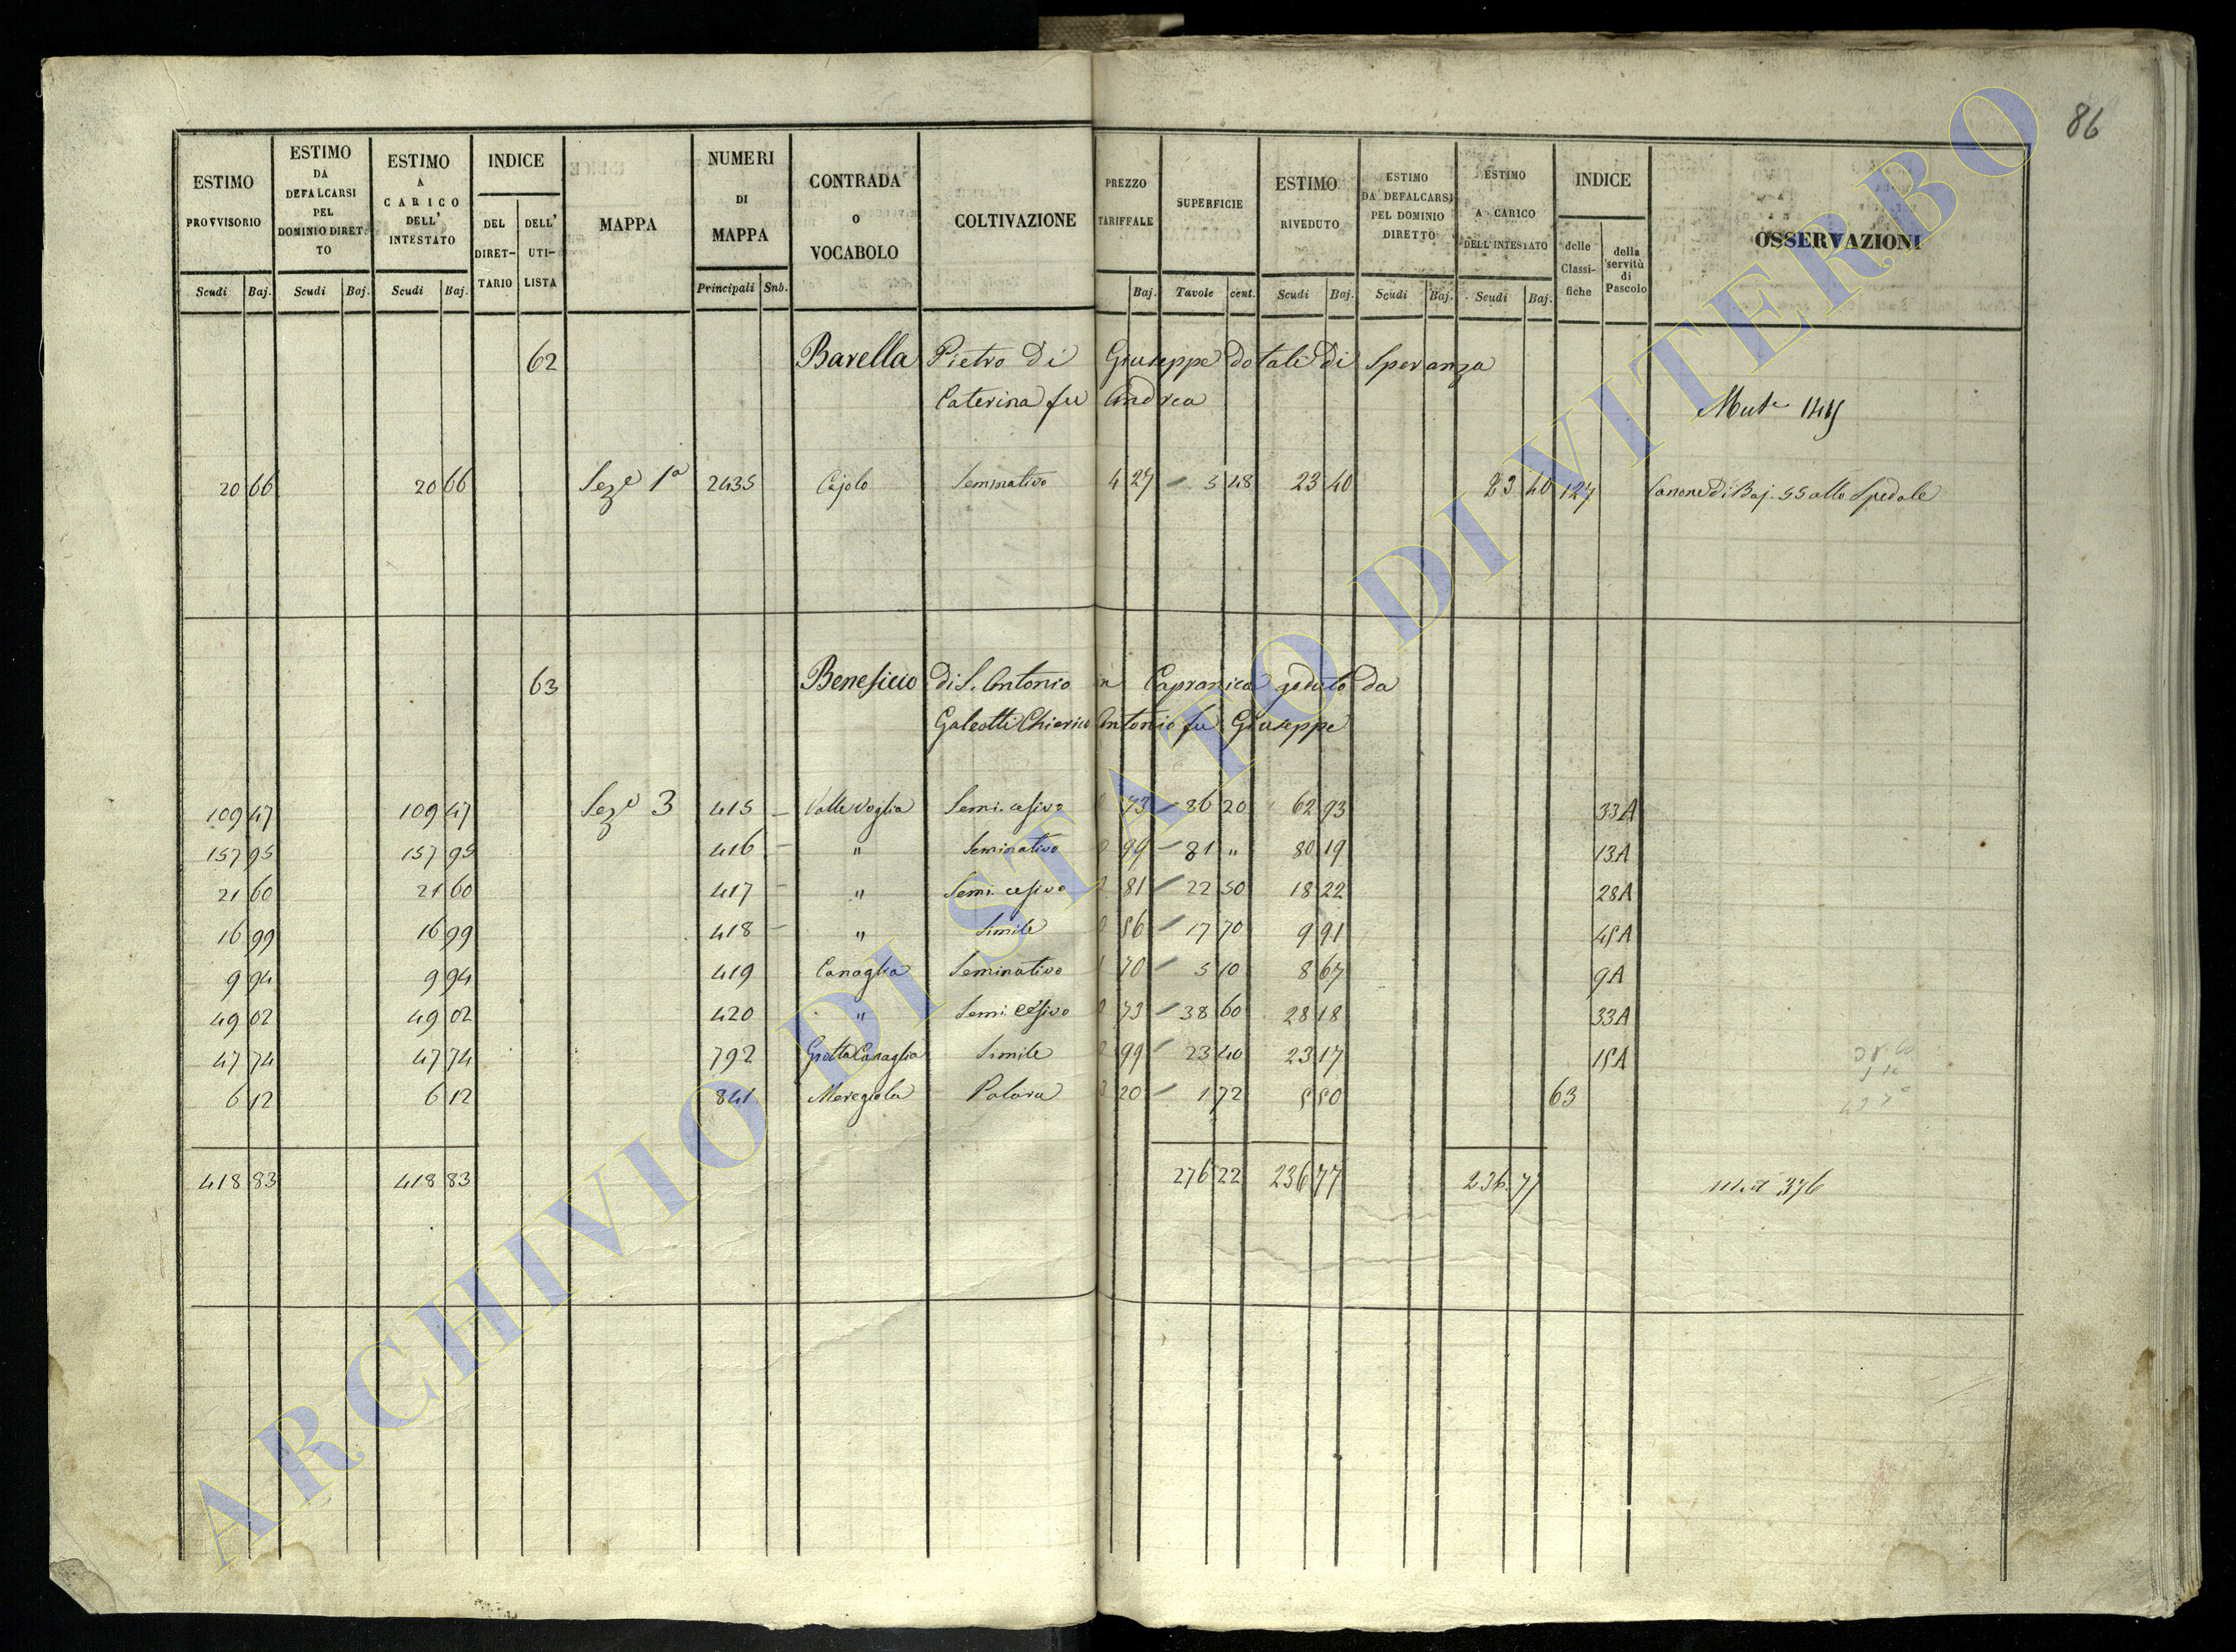 86
ESTIMO PROVVISORIO
ESTIMO DA DEFALCARSI PEL DOMINIO DIRETTO
ESTIMO A CARICO DELL' INTESTATO
INDICE
DEL DIRET-TARIO
DELL' UTI-LISTA
MAPPA
NUMERI DI MAPPA
CONTRADA o VOCABOLO
COLTIVAZIONE
PREZZO TARIFFALE
SUPERFICIE
ESTIMO RIVEDUTO
ESTIMO DA DEFALCARSI PEL DOMINIO DIRETTO
ESTIMO A CARICO DELL'INTESTATO
INDICE
delle Classi-fiche
della servitù di Pascolo
OSSERVAZIONI
Scudi Baj. Scudi Baj. Scudi Baj. Principali Sub. Baj. Tavole cent. Scudi Baj. Scudi Baj. Scudi Baj.
62 Barella Pietro di Giuseppe dotali di Speranza
Caterina fu Andrea
20 66 20 66 Sez.e 1a 2435 Cajolo Seminativo 4 27 5 48 23 40 23 40 127 Canone di Baj. 55 allo Spedale
63 Beneficio di S. Antonio in Capranica goduto da
Galeotti Chierico Antonio fu Giuseppe
109 47 109 47 Sez.e 3 415 Valle Voglia Semi. cesivo 0 73 86 20 62 93 33A
157 95 157 95 416 " Seminativo 0 99 81 " 80 19 13A
21 60 21 60 417 " Semi. cesivo 0 81 22 50 18 22 28A
16 99 16 99 418 " Simile 0 56 17 70 9 91 45A
9 94 9 94 419 Canaglia Seminativo 1 70 5 10 8 67 9A
49 02 49 02 420 " Semi. cesivo 0 73 38 60 28 18 33A
47 74 47 74 792 Grotta Canaglia Simile 0 99 23 40 23 17 15A
6 12 6 12 841 Meregiola 3 20 1 72 5 50 63
418 83 418 83 276 22 236 77 236 77 376
ARCHIVIO DI STATO DI VITERBO